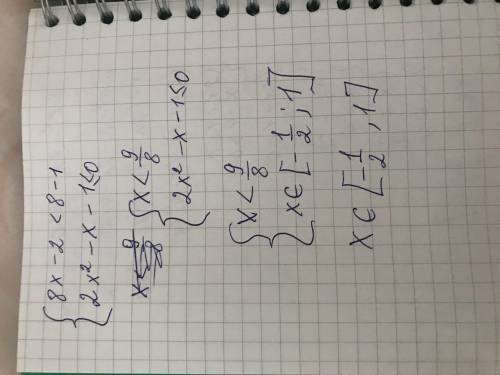 { 8x - 2 < 8 - 1
2x² - x - 1 ≤ 0
{ x < 9/8
2x² - x - 1 ≤ 0
{ x < 9/8
x ∈ [-1/2 ; 1]
x ∈ [-1/2 ; 1]